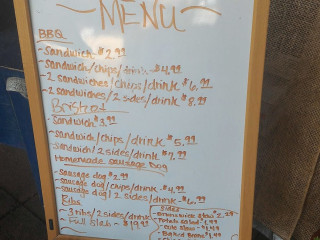 MENU
BBQ
- Sandwich $2.99
- Sandwich/chips/drink $4.99
- 2 sandwiches/chips/drink $6.99
- 2 sandwiches/2 sides/drink $8.99
Brisket
- Sandwich $3.99
- sandwich/chips/drink $5.99
- Sandwich/2 sides/drink $7.99
Homemade Sausage Dog
- Sausage dog $2.99
- sausage dog/chips/drink $4.99
- sausage dog/2 sides/drink $6.99
Ribs
- 3 ribs/2 sides/drink
- Full Slab - $19.99
Sides
- Brunswick Stew 2.29
- Potato Salad
- Cole Slaw - $1.49
- Baked Beans